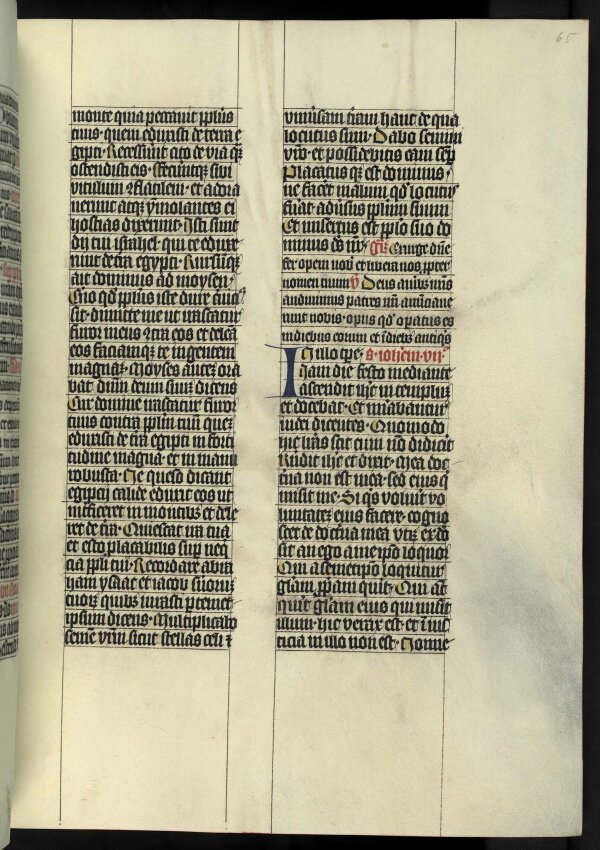 65
monte quia peccauit pplus
tuus quem eduxisti de terra e
gipti Recesserunt cito de via qm̄
ostendisti eis feceruntqꝫ sibi
vitulum ↄflatilem et adora
uerunt atqꝫ ymolantes ei
hostias dixerunt Isti sunt
dij tui israhel qui te eduxe
runt de tr̄a egypti Rursūqꝫ
ait dominus ad moysen
Cerno qd̓ pplus iste dure ceruic̄
sit dimitte me ut irascatur
furor meus ↄtra eos et deleā
eos faciamqꝫ te in gentem
magnaꝫ Moyses autē ora
bat dūm deum suuꝫ dicens
Cur domine irascatur furor
tuus contra pplm tuū queꝫ
eduxisti de tr̄a egipti in forti
tudine magna et in manu
robusta Ne queso dicant
egiptij callide eduxit eos ut
interficeret in montibꝫ et dele
ret de tr̄a Quiescat ira tua
et esto placabilis suꝑ neq̄
cia ppli tui Recordare abra
ham ysaac et iacob suorum
tuoꝝ quibꝫ iurasti ꝑ temet
ipsum dicens Multiplicabo
semē vr̄m sicut stellas celi ⁊
vniūsam t̄ram hanc de qua
locutus sum Dabo semini
vr̄o et possidebitis eam semꝑ
Placatus qꝫ est dominus
ne facēt malum qd̓ locutꝰ
fuāt aduersus pplum suum
Et misertus est pplo suo do
minus ds̄ nr̄ Gr̄ Exurge dn̄e
fer opem nobis et libera nos ꝓpter
nomen tuum v̄ Deus aurībꝫ nr̄is
audiuimus patres nr̄i annūciaue
runt nobis opus qd̓ opatus es
in diebus eorum et ī diebꝫ antiqͥs
In illo tp̄e s. ioh̄em vii
Iam die festo mediante
ascendit ih̄c in templum
et docebat Et mirabantur
iudei dicentes Quomodo
hic lr̄as scit cum nō didicit
Rn̄dit ih̄c et dixit Mea doc
trina non est mea sed eius q̄
misit me Si qͥs voluit vo
luntateꝫ eius facere cogno
scet de doctrina mea vtrꝫ ex do
sit an ego a meipso loquor
Qui a semetipso loquitur
glam ꝓpam querit Qui aūt
querit glam eius qui misit
illum hic verax est et iniꝰ
ticia in illo non est Nonne